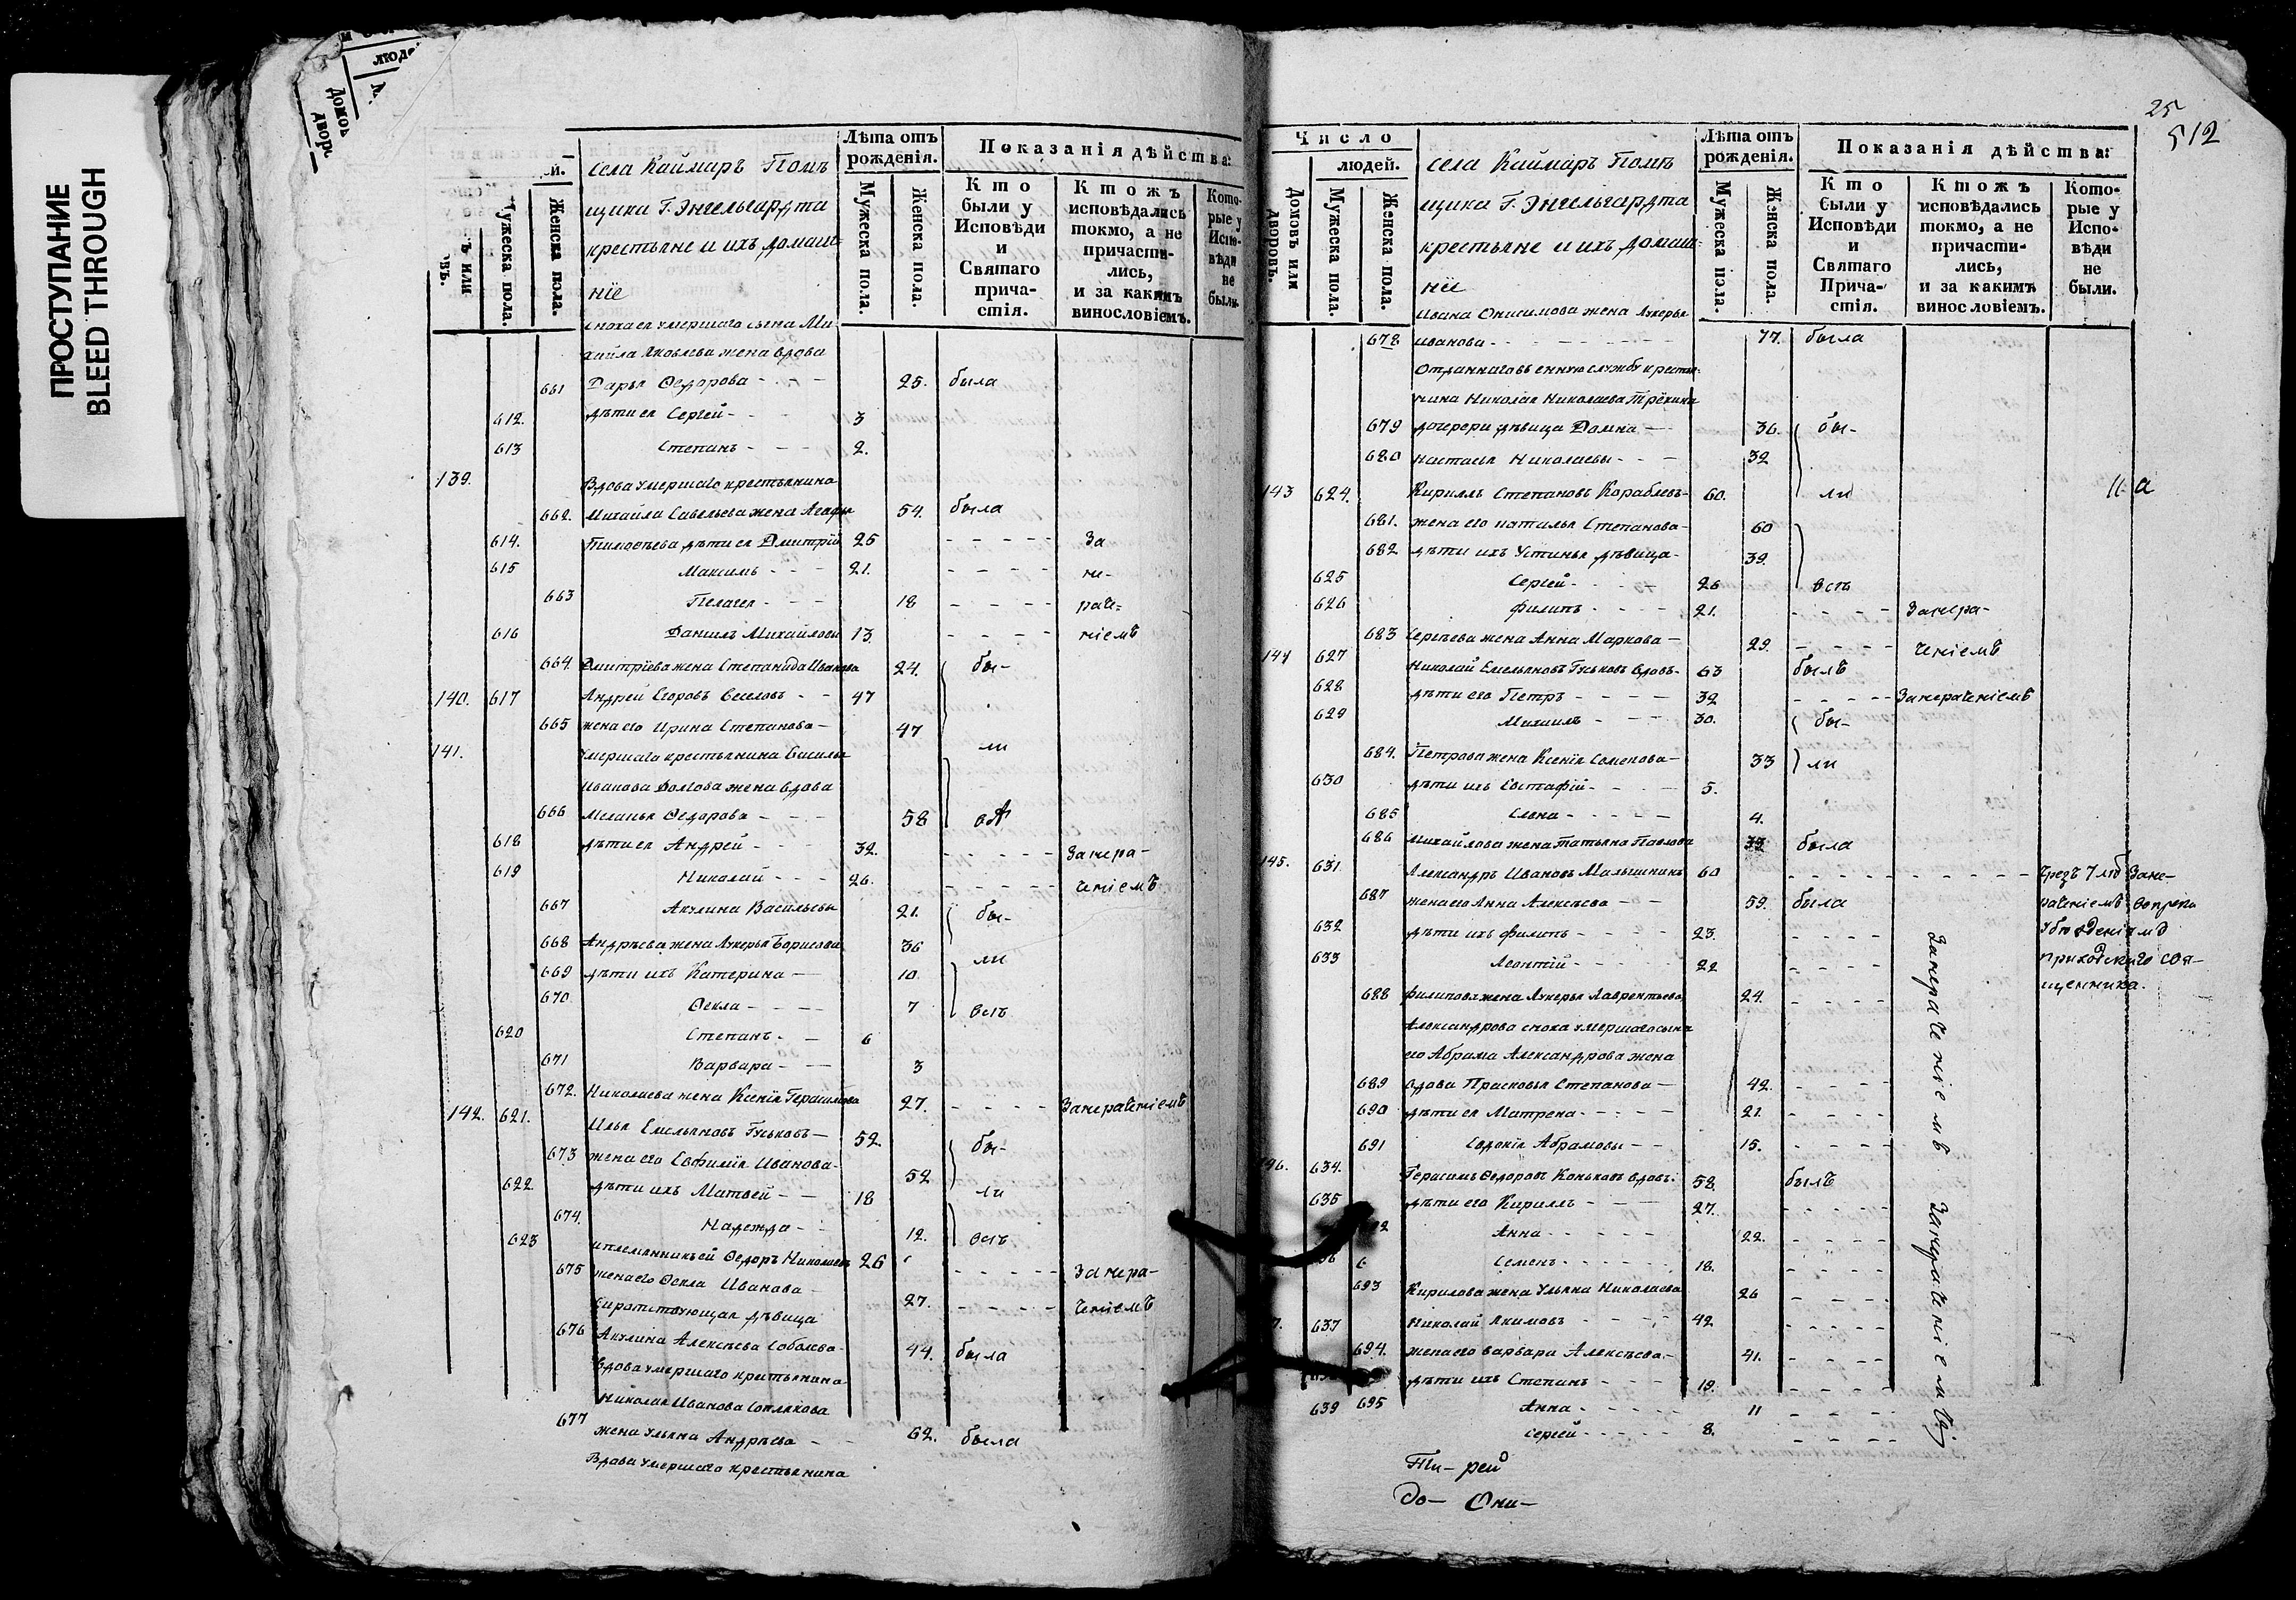 ПРОСТУПАНИЕ
BLEED THROUGH
люде
Домов
дворо
й.
ъ или
въ.
Мужеска пола.
Женска пола.
села Каймаръ Помѣ
щика Г. Энгельгардта
крестьяне и ихъ домаш=
ніе
Лѣта отъ
рожденія.
Мужеска пола.
Женска пола.
Показанія дѣйства:
Кто
были у
Исповѣди
и
Святаго
прича-
стія.
Ктожъ
исповѣдались
токмо, а не
причасти-
лись,
и за какимъ
винословіемъ.
Кото-
рые у
Испо-
вѣди
не
были.
сноха ея умершаго сына Ми-
хайла Яковлева жена вдова
661 Дарья Ѳедорова - - - 25. была
612. дѣти ея Сергей - - - 3
613 Степанъ - - - 2.
139. Вдова умершаго крестьянина
662. Михайла Савельева жена Агафья 54. была
614. Тимоѳѣева дѣти ея Дмитрій 25 - - - - За
615 Максимъ - - - 21. - - - - не-
663 Пелагея - - - 18 - - - - раче-
616 Данилъ Михайловы 13. - - - - ніемъ
664. Дмитріева жена Степанида Иванова 24. бы-
140. 617 Андрей Егоровъ Веселовъ - - 47
665 жена его Ирина Степанова - 47 ли
141. умершаго крестьянина Василья
Иванова Долгова жена вдова
666 Меланья Ѳедорова - - - 58
618 дѣти ея Андрей - - - 32. - - - - - Занера-
619 Николай - - - 26. - - - - - ченіемъ
667 Акулина Васильевы 21. бы-
668 Андрѣева жена Лукерья Борисова 36 ли
669 дѣти ихъ Катерина - 10.
670 Ѳекла - - - 7 всѣ
620 Степанъ - - 6
671 Варвара - - - 3
672. Николаева жена Ксенія Герасимова 27. - - - - Занераченіемъ
142. 621. Илья Емельяновъ Гуськовъ - 52. бы-
673 жена его Евфимія Иванова - 52
622. дѣти ихъ Матвей - - 18 ли
674. Надежда - - 12. всѣ
623 и племянникъ ей Ѳедоръ Николаевъ 26 - - - - - Занера-
675 жена его Ѳекла Иванова - 27. - - - - ченіемъ
Сиротствующая дѣвица
676 Акулина Алексѣева Соболева - 44. была
Вдова умершаго крестьянина
Николая Иванова Соплякова
677 жена Ульяна Андрѣева - - 62. была
Вдова умершаго крестьянина
25
512
Число
людей.
Домовъ или
дворовъ.
Мужеска пола.
Женска пола.
села Каймаръ Помѣ
щика Г. Энгельгардта
крестьяне и ихъ домаш=
ніе
Лѣта отъ
рожденія.
Мужеска пола.
Женска пола.
Показанія дѣйства:
Кто
были у
Исповѣди
и
Святаго
Прича-
стія.
Ктожъ
исповѣдались
токмо, а не
причасти-
лись,
и за какимъ
винословіемъ.
Кото-
рые у
Испо-
вѣди
не
были.
Ивана Онисимова жена Лукерья
678 Иванова - - - - - - 77. была
Отданнаго въ енную службу крестья-
нина Николая Николаева Трёкина
679 дочрери дѣвица Домна - 36. бы-
680 Настасья Николаевы - - 32
143 624. Кирилъ Степановъ Кораблевъ - 60. ли
681. жена его Наталья Степанова - 60
682 дѣти ихъ Устинья дѣвица - 39.
625 Сергей - - - 26 всѣ
626 Филипъ - - - 21. - - - - Занера-
683 Сергѣева жена Анна Маркова - 29. - - - - ченіемъ
144 627 Николай Емельяновъ Гуськовъ вдовъ - 63 былъ
628 дѣти его Петръ - - - 32 - - - - Занераченіемъ
629 Михаилъ - - - 30. бы-
684. Петрова жена Ксенія Семенова - 33 ли
630 дѣти ихъ Евстафій - - - 5.
685 Елена - - - - 4.
686 Михайлова жена Татьяна Павлова 33 была
145. 631. Александръ Ивановъ Малышкинъ 60 - - - - - - - - - чрезъ 7 лѣтъ Зане-
687 жена его Анна Алексѣева - - 59. была раченіемъ вопреки
632 дѣти ихъ Филипъ - - - 23. - - - - убѣжденіямъ
633 Леонтій - - - 22 - - - - приходскаго свя-
щенника.
688 Филипова жена Лукерья Лаврентьева 24. - - - -
Александрова сноха умершаго сына
его Абрама Александрова жена
689 вдова Прасковья Степанова - 42. - - - -
690 дѣти ея Матрена - - - - 21. - - - -
691 Евдокія Абрамовы - - 15. - - - -
Занераченіемъ
146. 634. Герасимъ Ѳедоровъ Коньковъ вдовъ. 58. былъ
635 дѣти его Кирилъ - - - 27. - - - -
Анна - - - - 22. - - - -
Семенъ - - - - 18. - - - -
693 Кирилова жена Ульяна Николаева 26 - - - -
7. 637 Николай Якимовъ - - - - 42 - - - -
694. жена его Варвара Алексѣева - 41. - - - -
дѣти ихъ Степанъ - - - 19. - - - -
639 695 Анна - - - - 11 - - -
Сергей - - - - 8. - - - -
Занераченіемъ
Ти- рей
До- Они-